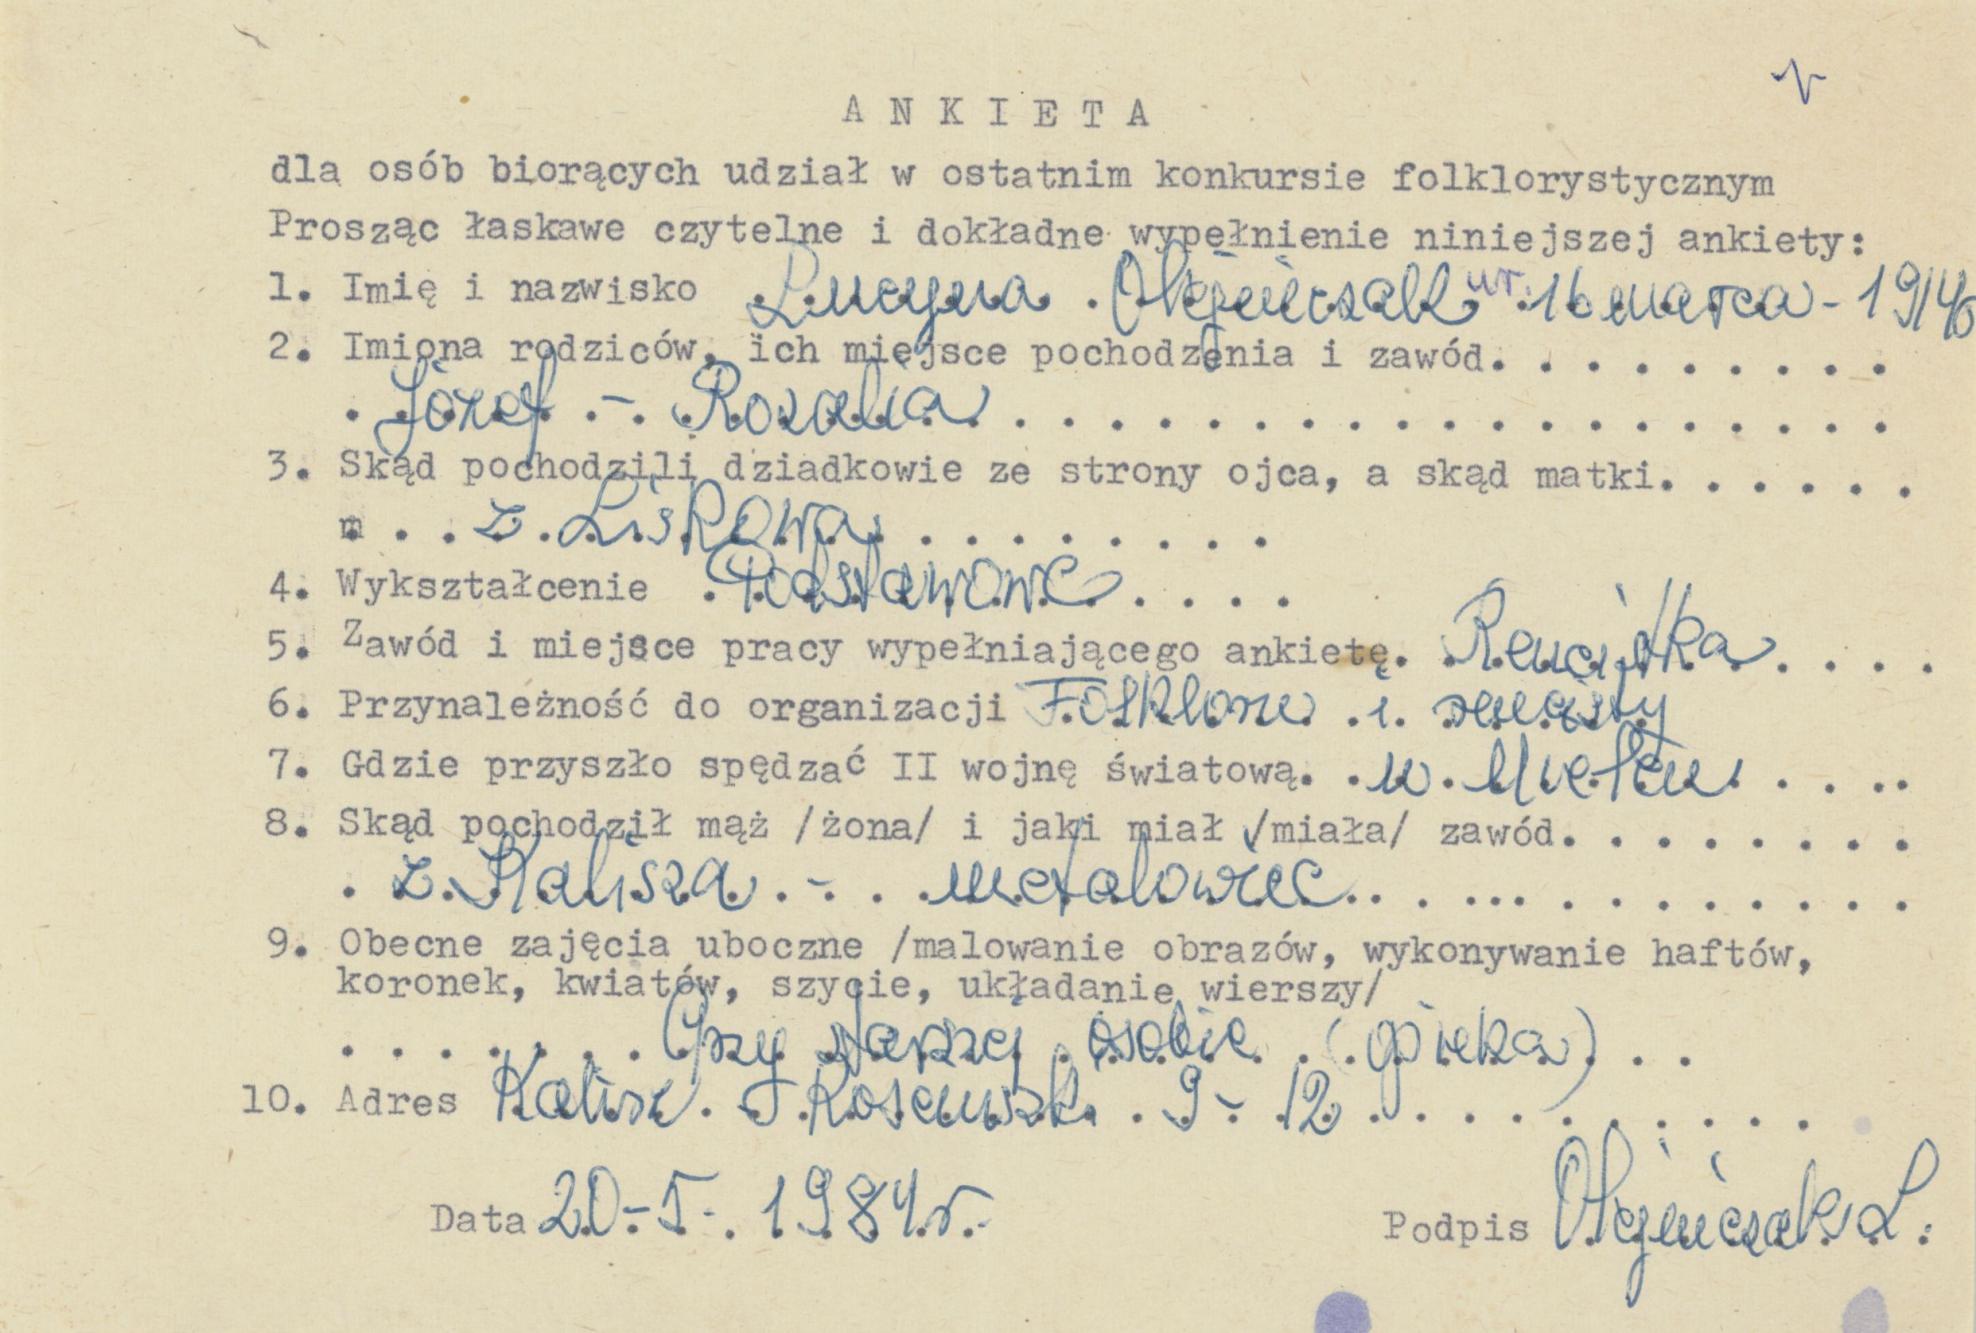 ANKIETA
dla osób biorących udział w ostatnim konkursie folklorystycznym
Prosząc łaskawe czytelne i dokładne wypełnienie niniejszej ankiety:
1. Imię i nazwisko Lucyna Olejniczak ur. 16 marca - 1914
2. Imiona rodziców, ich miejsce pochodzenia i zawód. . . . . . . . .
. Józef - Rozalia . . . . . . . . . . . . . . . . . . .
3. Skąd pochodzili dziadkowie ze strony ojca, a skąd matki. . . . . .
m . . z Liskowa . . . . . . . . .
4. Wykształcenie . Podstawowe . . . .
5. Zawód i miejsce pracy wypełniającego ankietę. Rencistka . . . .
6. Przynależność do organizacji Folklore i rencisty
7. Gdzie przyszło spędzać II wojnę światową. . w . . . . .
8. Skąd pochodził mąż /żona/ i jaki miał /miała/ zawód. . . . . . . .
. z Kalisza . - . . metalowiec . . . . . . . . . . . . . .
9. Obecne zajęcia uboczne /malowanie obrazów, wykonywanie haftów,
koronek, kwiatów, szycie, układanie wierszy/
. . . . . . . Przy starszej osobie . (opieka) . .
10. Adres Kalisz . 9 - 12 . . . . . . . . . .
Data 20-5-. 1984 r.
Podpis Olejniczak L.